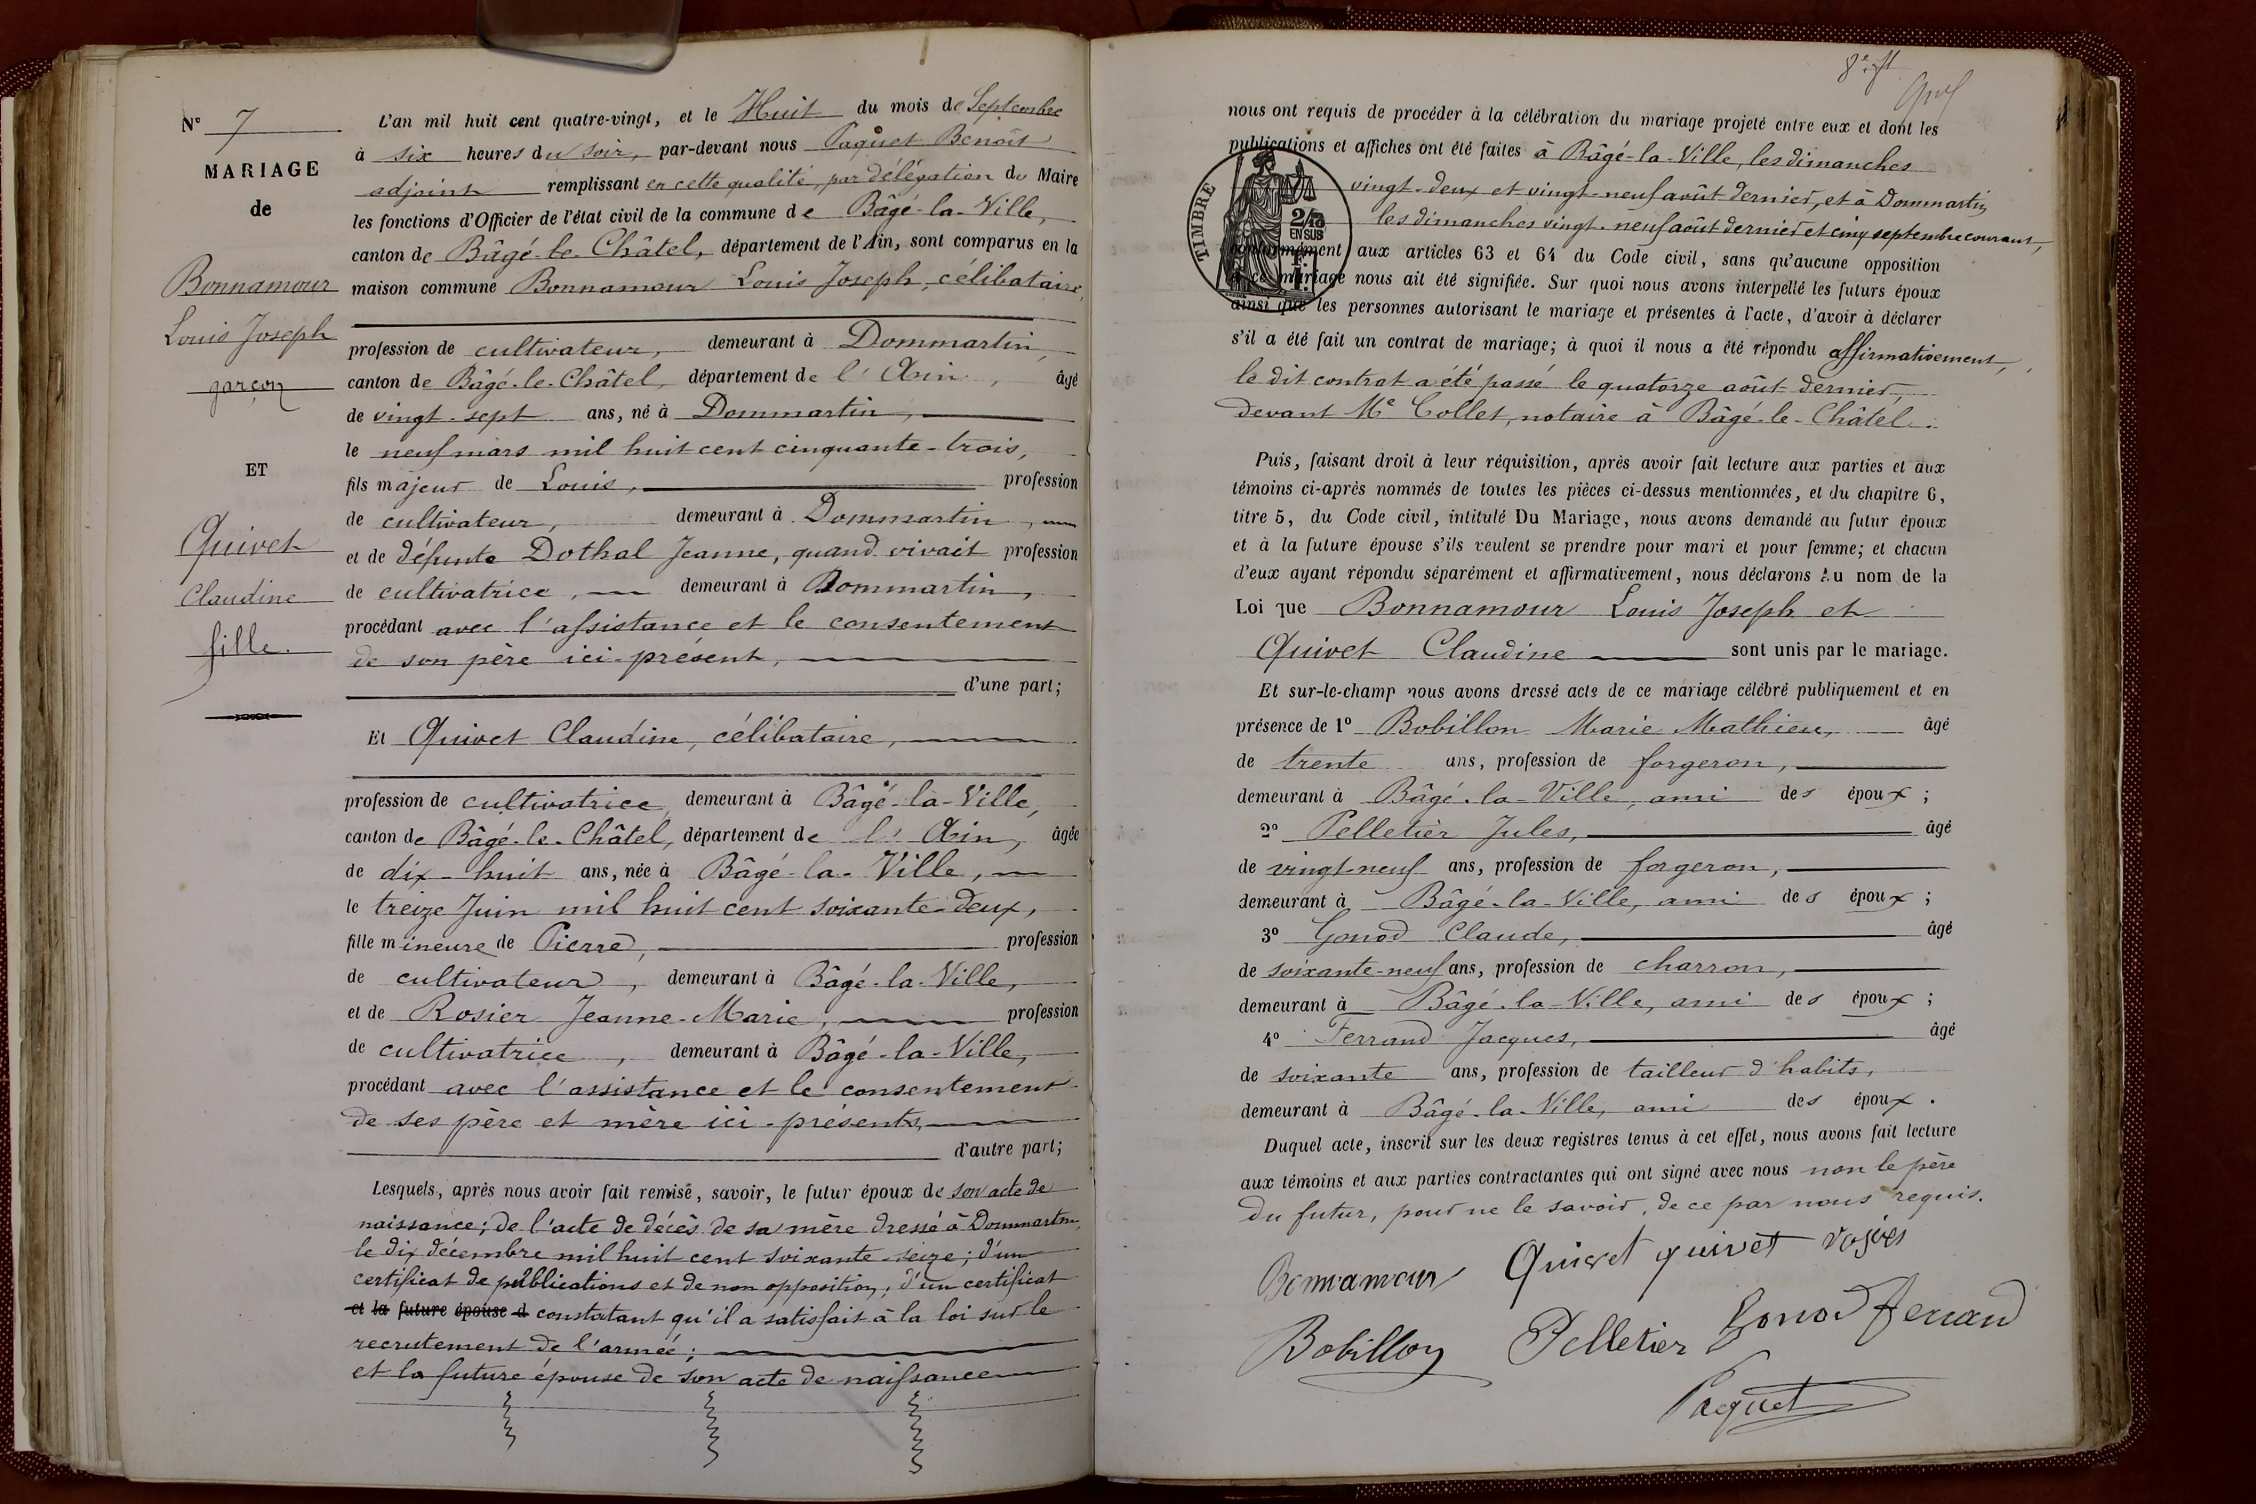 N° 7
MARIAGE
de
Bonnamour
Louis Joseph
garçon
ET
Quivet
Claudine
fille.
L'an mil huit cent quatre-vingt, et le Huit du mois de Septembre
à six heures du soir, par-devant nous Paquet Benoît
adjoint remplissant en cette qualité, par délégation du Maire
les fonctions d'Officier de l'état civil de la commune de Bâgé-la-Ville,
canton de Bâgé-le-Châtel, département de l'Ain, sont comparus en la
maison commune Bonnamour Louis Joseph, célibataire,
profession de cultivateur, demeurant à Dommartin,
canton de Bâgé-le-Châtel, département de l'Ain, âgé
de vingt-sept ans, né à Dommartin,
le neuf mars mil huit cent cinquante-trois,
fils majeur de Louis, profession
de cultivateur, demeurant à Dommartin,
et de défunte Dothal Jeanne, quand vivait profession
de cultivatrice, demeurant à Dommartin,
procédant avec l'assistance et le consentement
de son père ici-présent,
d'une part;
Et Quivet Claudine, célibataire,
profession de cultivatrice, demeurant à Bâgé-la-Ville,
canton de Bâgé-le-Châtel, département de l'Ain, âgée
de dix-huit ans, née à Bâgé-la-Ville,
le treize Juin mil huit cent soixante-deux,
fille mineure de Pierre, profession
de cultivateur, demeurant à Bâgé-la-Ville,
et de Rosier Jeanne-Marie, profession
de cultivatrice, demeurant à Bâgé-la-Ville,
procédant avec l'assistance et le consentement
de ses père et mère ici-présents,
d'autre part;
Lesquels, après nous avoir fait remise, savoir, le futur époux de son acte de
naissance; de l'acte de décès de sa mère dressé à Dommartin,
le dix décembre mil huit cent soixante-seize; d'un
certificat de publications et de non opposition; d'un certificat
et la future épouse d constatant qu'il a satisfait à la loi sur le
recrutement de l'armée;
et la future épouse de son acte de naissance
8e ft
nous ont requis de procéder à la célébration du mariage projeté entre eux et dont les
publications et affiches ont été faites à Bâgé-la-Ville, les dimanches
vingt-deux et vingt-neuf août dernier, et à Dommartin
les dimanches vingt-neuf août dernier et cinq septembre courant,
TIMBRE
2/10
EN SUS
conformément aux articles 63 et 64 du Code civil, sans qu'aucune opposition
à ce mariage nous ait été signifiée. Sur quoi nous avons interpellé les futurs époux
ainsi que les personnes autorisant le mariage et présentes à l'acte, d'avoir à déclarer
s'il a été fait un contrat de mariage; à quoi il nous a été répondu affirmativement,
le dit contrat a été passé le quatorze août dernier,
devant Me Collet, notaire à Bâgé-le-Châtel.
Puis, faisant droit à leur réquisition, après avoir fait lecture aux parties et aux
témoins ci-après nommés de toutes les pièces ci-dessus mentionnées, et du chapitre 6,
titre 5, du Code civil, intitulé Du Mariage, nous avons demandé au futur époux
et à la future épouse s'ils veulent se prendre pour mari et pour femme; et chacun
d'eux ayant répondu séparément et affirmativement, nous déclarons Au nom de la
Loi que Bonnamour Louis Joseph et
Quivet Claudine sont unis par le mariage.
Et sur-le-champ nous avons dressé acte de ce mariage célébré publiquement et en
présence de 1° Bobillon Marie Mathieu, âgé
de trente ans, profession de forgeron,
demeurant à Bâgé-la-Ville, ami des époux;
2° Pelletier Jules, âgé
de vingt-neuf ans, profession de forgeron,
demeurant à Bâgé-la-Ville, ami des époux;
3° Gonod Claude, âgé
de soixante-neuf ans, profession de charron,
demeurant à Bâgé-la-Ville, ami des époux;
4° Ferrand Jacques, âgé
de soixante ans, profession de tailleur d'habits,
demeurant à Bâgé-la-Ville, ami des époux.
Duquel acte, inscrit sur les deux registres tenus à cet effet, nous avons fait lecture
aux témoins et aux parties contractantes qui ont signé avec nous non le père
du futur, pour ne le savoir, de ce par nous requis.
Bonnamour Quivet quivet rosier
Bobillon Pelletier Gonod ferrand
Paquet